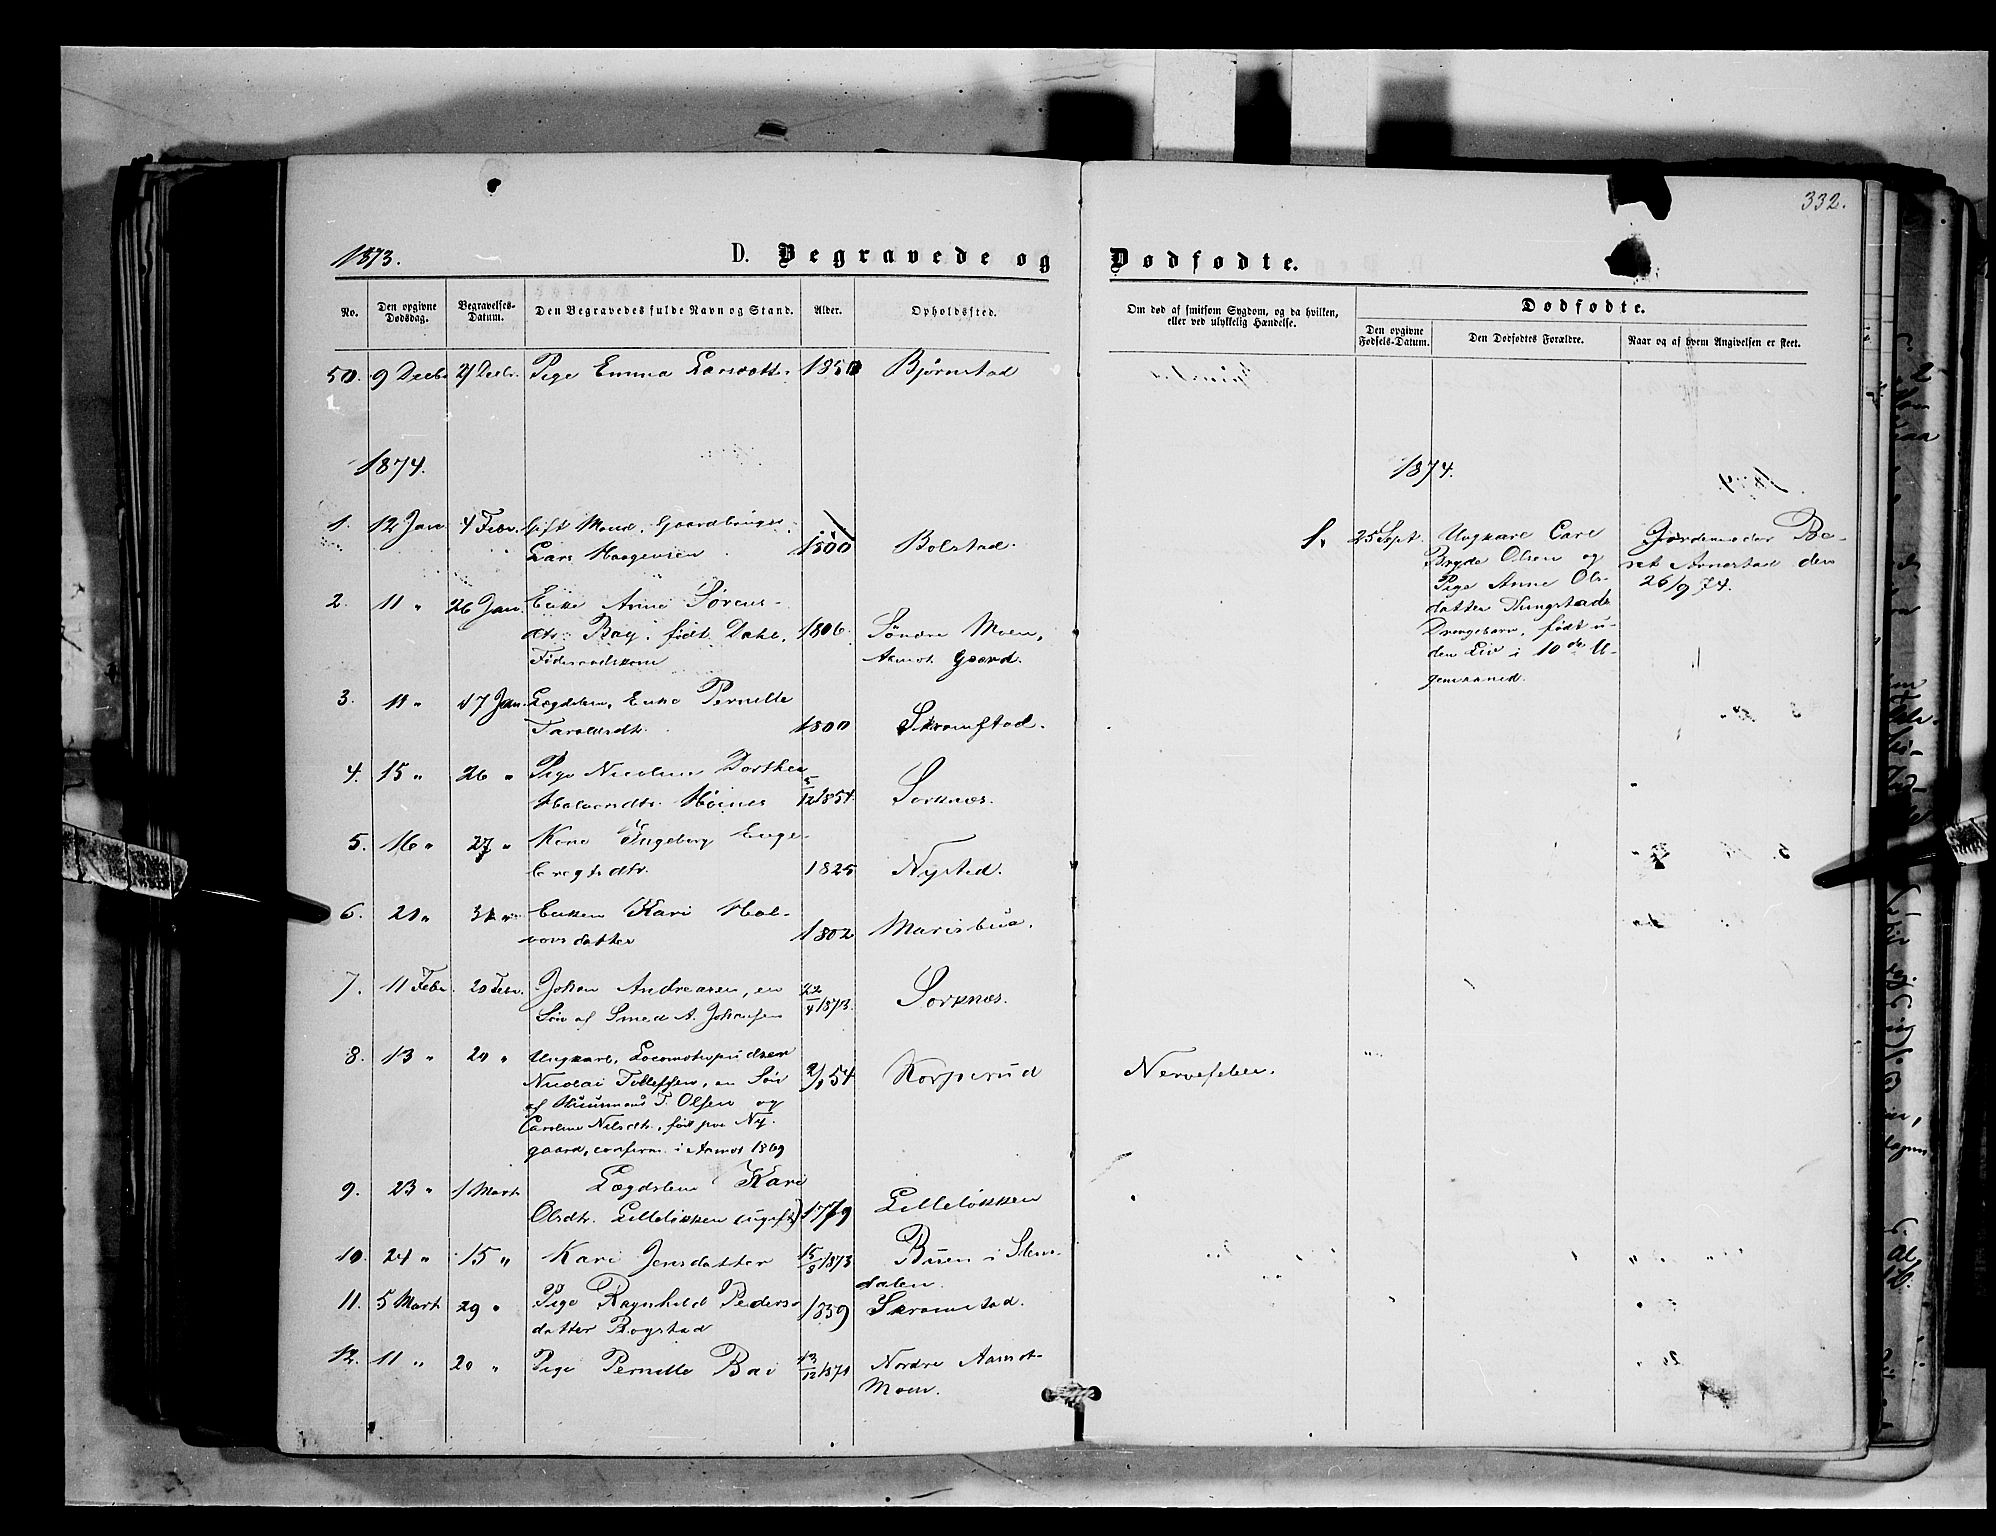 332.
1873.
D. Begravede og Dødfødte.
No.
Den opgivne Dødsdag.
Begravelses-Datum.
Den Begravedes fulde Navn og Stand.
Alder.
Opholdssted.
Om død af smitsom Sygdom, og da hvilken, eller ved ulykkelig Hændelse.
Dødfødte.
Den opgivne Fødsels-Datum.
Den Dødfødtes Forældre.
Naar og af hvem Angivelsen er skeet.
50. 9 Decbr 21 Decbr. Pige Emma Larsdatter 1850 Bjørnstad
1874.
1874.
1. 12 Jan 4 Febr. Gift Mand, Gaardbruger
Lars Haagensen 1800 Bolstad.
2. 11 " 26 Jan. Enke Anne Sørens-
dtr. Bay, født Dahl, 1806. Søndre Moen,
Føderaadskone Aamot Gaard.
3. 11 " 17 Jan. Lægdslem, Enke Pernille
Taraldsdtr. 1800 Skramstad.
4. 15 " 26 " Pige Nicoline Dorthea
Halvorsdtr. Hoines 5/12 1854. Sorknæs.
5. 16 " 27 " Kone Ingeborg Enge-
bregtsdtr. 1825 Nysted.
6. 21 " 31 " Enken Kari Hal-
vorsdatter 1802 Marisbua.
7. 11 Febr. 20 Febr. Johan Andreasen, en
Søn af Smed A. Johansen 22/4 1873. Sorknæs.
8. 13 " 20 " Ungkarl, Locomotivpudser
Nicolai Tollefsen, en Søn
af Huusmand T. Olsen og
Caroline Nilsdtr., født paa Ny-
gaard, confirm. i Aamot 1869
54 Korperud Nervefeber.
9. 23 " 1 Mart Lægdslem Kari
Olsdtr. Lilleløkken (ugift) 1779 Lilleløkken
10. 24 " 15 " Kari Jensdatter 15/8 1873 Buen i Slem-
dalen.
11. 5 Mart 29 " Pige Ragnhild Peders-
datter Bogstad 1839 Skramstad.
12. 11 " 20 " Pige Pernille Bai 13/12 1871 Nordre Aamot-
Moen.
1. 25 Sept. Ungkarl Carl
Bryde Olsen og
Pige Anne Ols-
datter Kungstad
Drengebarn, født u-
den Liv i 10de U-
gemaaned.
Jordemoder Be-
ret Arnestad den
26/9 74.